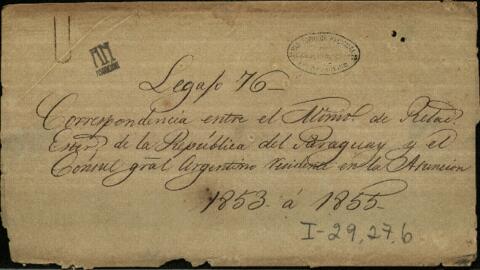 Legajo 76
Correspondencia entre el Minro. de Relac.
Exters. de la República del Paraguay y el
Cónsul gral Argentino residente en la Asuncion
1853 á 1855
I-29,27,6